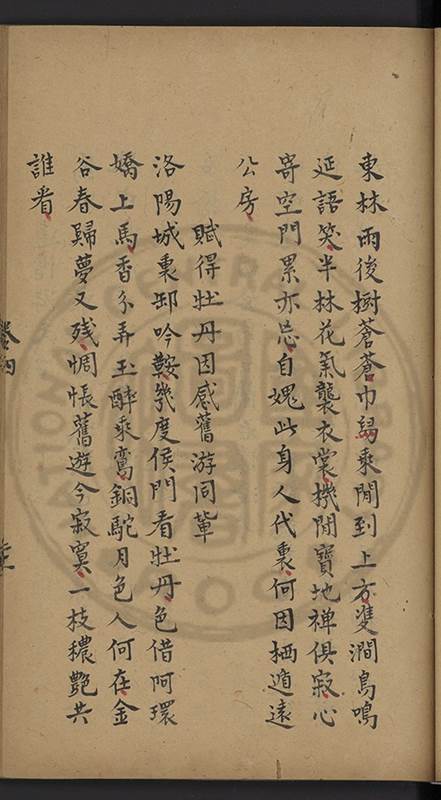 東林雨後樹蒼蒼巾舃乘閒到上方雙澗鳥鳴
延語笑半林花氣襲衣裳機閒寶地禅俱寂心
寄空門累亦忘自媿此身人代裏何因栖遁遠
公房
賦得牡丹因感舊游同輩
洛陽城裏卸吟鞍幾度侯門看牡丹色借阿環
嬌上馬香分弄玉醉乘鸞銅駝月色人何在金
谷春歸夢又残惆悵舊遊今寂寞一枝穠艷共
誰看